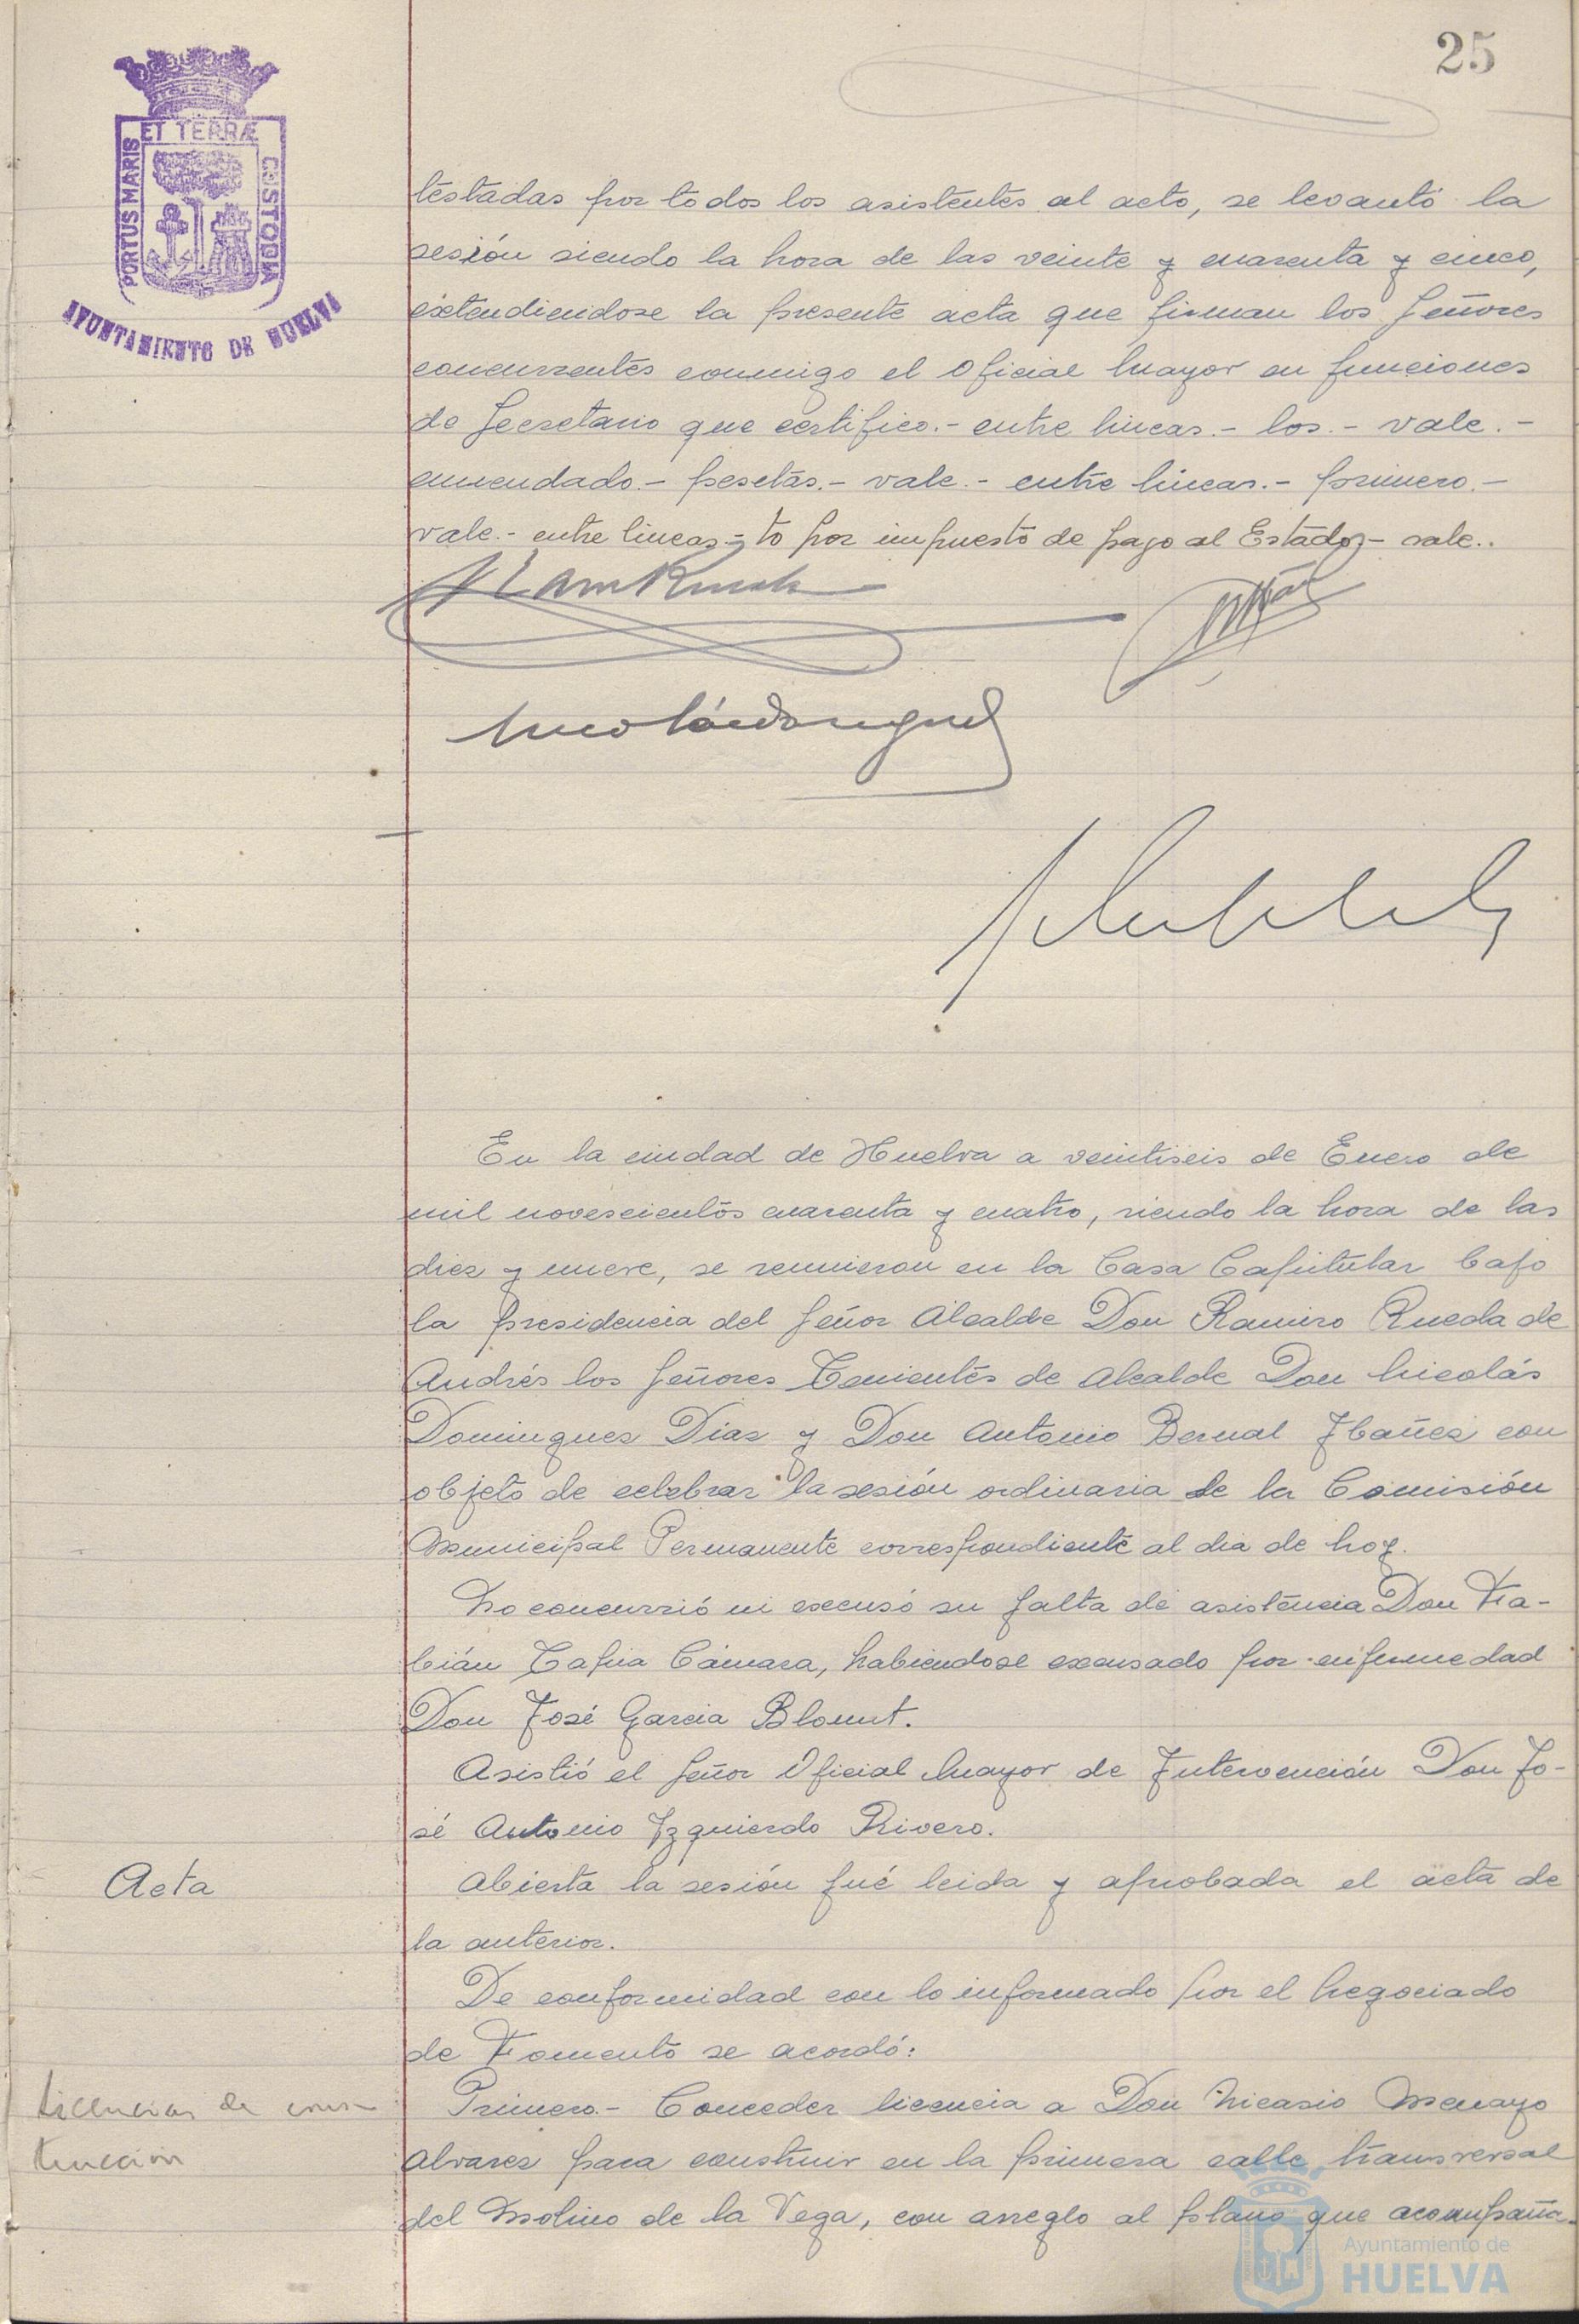 25
PORTUS MARIS ET TERRÆ CUSTODIA
AYUNTAMIENTO DE HUELVA
testadas por todos los asistentes al acto, se levantó la
sesión siendo la hora de las veinte y cuarenta y cinco,
extendiendose la presente acta que firman los Señores
concurrentes conmigo el Oficial Mayor en funciones
de Secretario que certifico.- entre lineas.- los.- vale.-
enmendado.- pesetas.- vale.- entre lineas.- primero.-
vale.- entre lineas.- to por impuesto de pago al Estado.- vale..
En la ciudad de Huelva a veintiseis de Enero de
mil novescientos cuarenta y cuatro, siendo la hora de las
diez y nueve, se reunieron en la Casa Capitular bajo
la presidencia del Señor Alcalde Don Ramiro Rueda de
Andrés los Señores Tenientes de Alcalde Don Nicolás
Dominguez Diaz y Don Antonio Bernal Ibañez con
objeto de celebrar la sesión ordinaria de la Comisión
Municipal Permanente correspondiente al dia de hoy.
No concurrió ni excusó su falta de asistencia Don Fa-
bián Tapia Cámara, habiendose excusado por enfermedad
Don José Garcia Blount.
Asistió el Señor Oficial Mayor de Intervención Don Jo-
sé Antonio Izquierdo Rivero.
Acta
Abierta la sesión fué leida y aprobada el acta de
la anterior.
De conformidad con lo informado por el Negociado
de Fomento se acordó:
Licencias de cons-
trucción
Primero.- Conceder licencia a Don Nicasio Menayo
Alvarez para construir en la primera calle transversal
del Molino de la Vega, con arreglo al plano que acompaña.
Ayuntamiento de
HUELVA